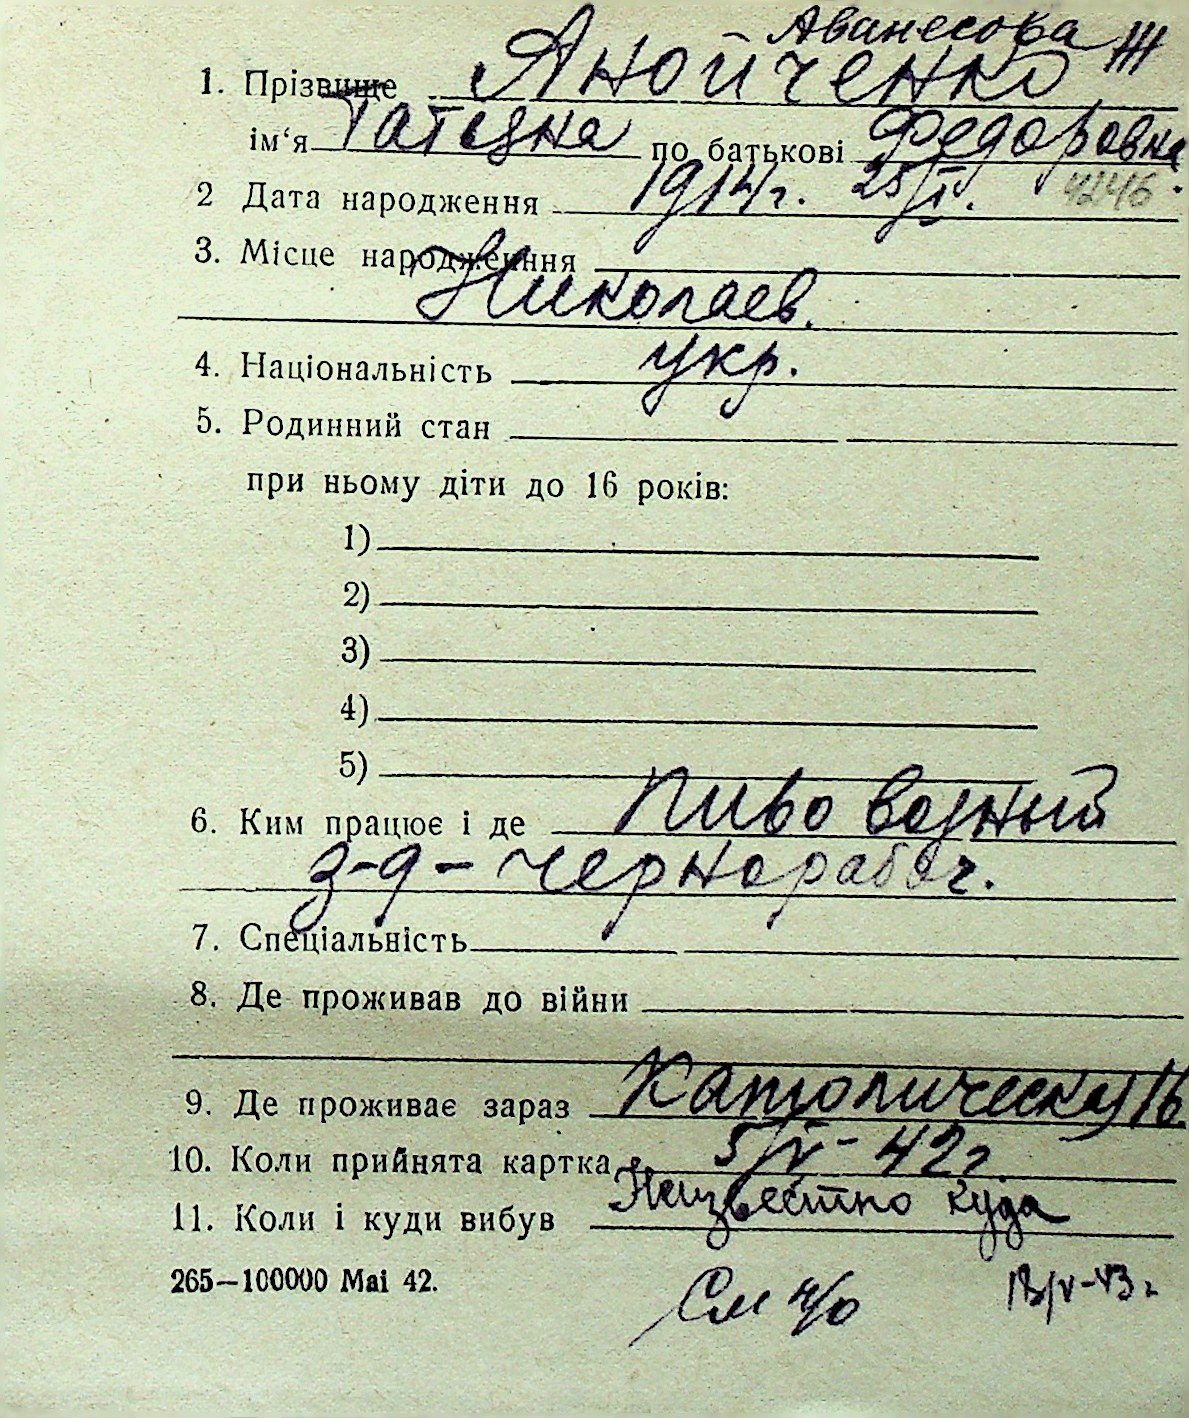 Аванесова Ж
1. Прізвище Анойченко
ім‘я Татьяна по батькові Федоровна
2 Дата народження 1914г. 25/I. 4246
3. Місце народження
Николаев.
4. Національність укр.
5. Родинний стан
при ньому діти до 16 років:
1)
2)
3)
4)
5)
6. Ким працює і де Пиво варный
з-д - чернорабоч.
7. Спеціальність
8. Де проживав до війни
9. Де проживає зараз Католическая 16
10. Коли прийнята картка 5/V- 42г
11. Коли і куди вибув Неизвестно куда
265—100000 Mai 42. 18/V-43г
См н/о